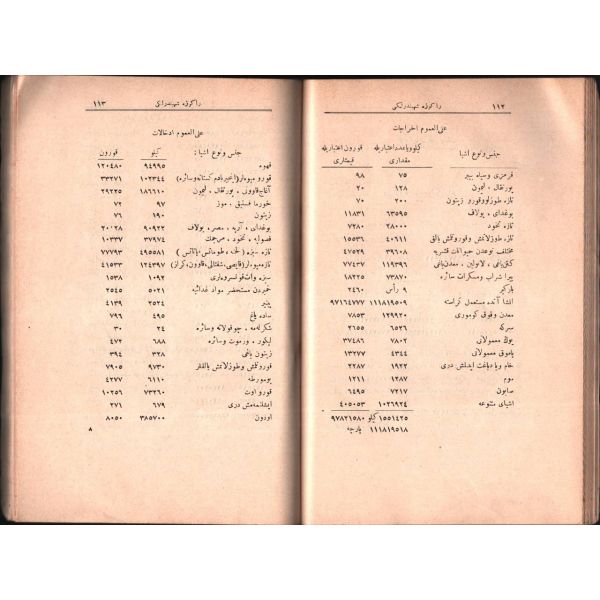 ١١٢ راكوزه شهبندرلكى
على العموم اخراجات
جنس ونوع اشيا كيلو وياعدد اعتباريله مقدارى قورون اعتباريله قيمتلرى
قرمزى وسياه بيبر ٧٥ ٩٨
پورتقال ، ليمون ١٢٨ ٢٠
تازه طوزلو وقورو زيتون ٢٠٠ ٧٠
بوغداى ، يولاف ٦٣٥٩٥ ١١٨٣١
تازه نخود ٢٨٠٠٠ ٧٢٨٠
تازه طوزلانمش وقوروتلمش بالق ٤٠٦١١ ١٥٥٣٦
مختلف نوعدن حيوانات قشريه ٣٩٦٠٨ ٤٧٥٢٩
كتن ياغى ، لانولين ، معدن ياغى ١١٣٩٣٦ ٧٧٤٣٧
بيرا شراب ومسكرات سائره ٧٣٨٧٠ ١٨٢٢٥
باركير ٩ رأس ٢٤٦٠
انشا آنده مستعمل كراسته ١١١٨١٩٥٠٩ ٩٧١٦٤٧٧٧
معدن وقوق كومورى ١٢٩٩٢٠ ٧٨٥٣
سركه ٦٥٢٦ ٢٦٥٥
يوك معمولاتى ٧٨٠٢ ٣٧٤٨٦
پاموق معمولاتى ٤٣٤٤ ١٣٢٧٧
خام ويا دباغت ايدلمش درى ١٩٢٢ ٢٢٨٧
موم ١٢٨٧ ١٢١١
صابون ٧٢١٧ ٦٤٩٥
اشياى متنوعه ١٠٢٦٩٢٤ ٤٠٥٠٥٣
١٥٥١٤٢٥ كيلو ٩٧٨٢١٥٨٠
١١١٨١٩٥١٨ پارچه
راكوزه شهبندرلكى ١١٣
على العموم ادخالات
جنس ونوع اشيا : كيلو قورون
قهوه ٩٤٩٩٥ ١٢٠٤٨٠
قورو ميوه‌لر (انجير بادم كستانه وسائره) ١٠٢٣٤٤ ٣٣٢٧١
آغاج قاوونى ، پورتقال ، ليمون ١٨٦٦١٠ ٢٩٢٢٥
خورما فستيق ، موز ٩٧ ٧٢
زيتون ١٩٠ ٧٦
بوغداى ، آرپه ، مصر ، يولاف ٩٠٩٢٢ ٢٠٠٢٨
فصوليه ، نخود ، مرجمك ٣٧٩٧٤ ١٠٣٣٧
تازه سبزه (لحنه، طوماتس، پاتاتس) ٤٩٥٥٨١ ٧٧٧٩٣
تازه ميوه‌لر (قايصى، شفتالى، قاوون، كراز) ١٢٤٣٩٧ ٤١٥٣٣
سبزه وات قونسروه‌لرى ١٠٩٢ ١٥٣٨
خميردن مستحضر مواد غدائيه ٥٠٢١ ٢٥٤٥
پينير ٢٥٢٤ ٤١٣٩
ساده ياغ ٤٩٥ ٧٩٦
شكرلمه ، چوقولاته وسائره ٢٤ ٣٠
ليكور ، ورموت وسائره ٦٨٨ ٤٧٢
زيتون ياغى ٣٢٨ ٣٩٤
قوروتلمش وطوزلانمش بالقلر ٩٧٣٠ ٧٩٠٥
يومورطه ٦١١٠ ٤٢٧٧
قورو اوت ٧٣٢٦٠ ١٠٢٥٦
ايشلنمه‌مش درى ٦٧٩ ٢٧١
اودون ٣٨٥٧٠٠ ٨٠٥٠
٨